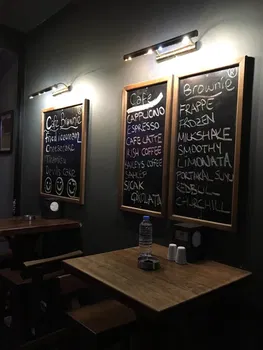 Cafe Brownie ®
Cheesecake
Tiramisu
Cafe
CAPPUCINO
ESPRESSO
CAFE LATTE
IRISH COFFEE
BAILEYS COFFEE
SAHLEP
SICAK
ÇİKOLATA
Brownie ®
FRAPPE
FROZEN
MILKSHAKE
SMOOTHY
LIMONATA
PORTAKAL SUYU
REDBULL
CHURCHILL